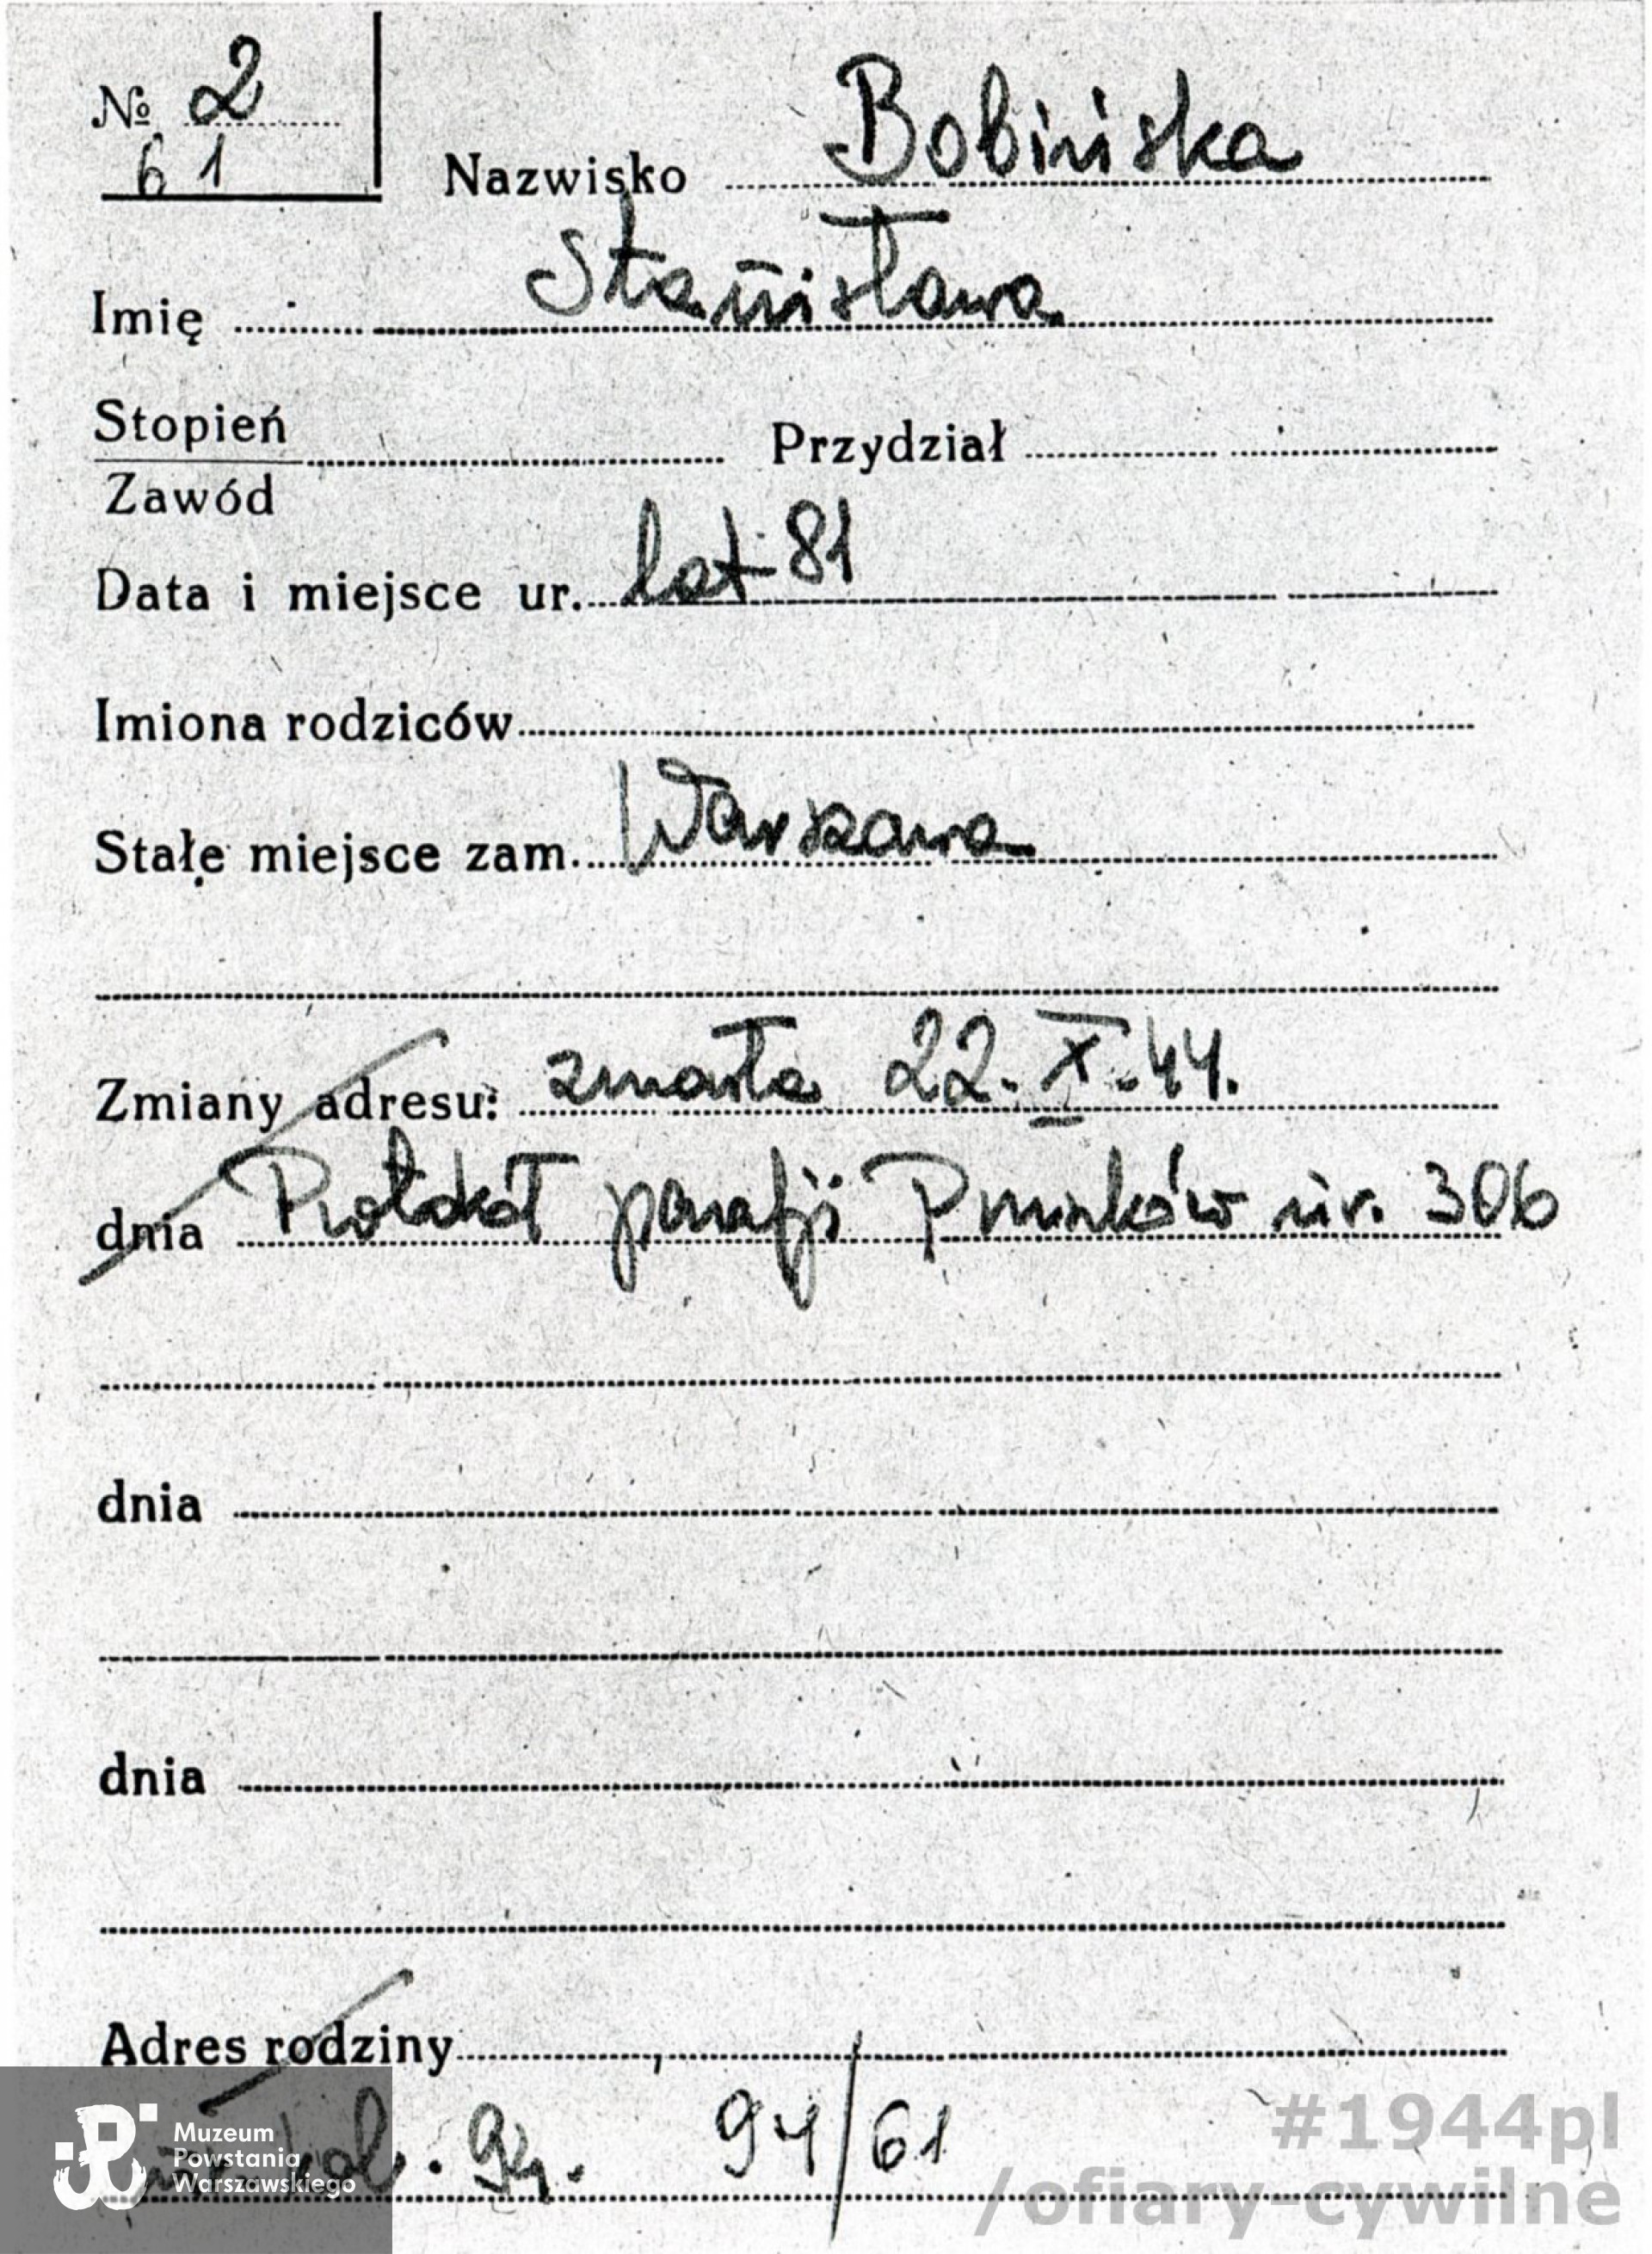 № 2
61
Nazwisko Bobińska
Imię Stanisława
Stopień Przydział
Zawód
Data i miejsce ur. lat 81
Imiona rodziców
Stałe miejsce zam. Warszawa
Zmiany adresu: zmarła 22. X. 44.
dnia parafji nr. 306
dnia
dnia
Adres rodziny
94/61
Muzeum
Powstania
Warszawskiego
#1944pl
/ofiary-cywilne